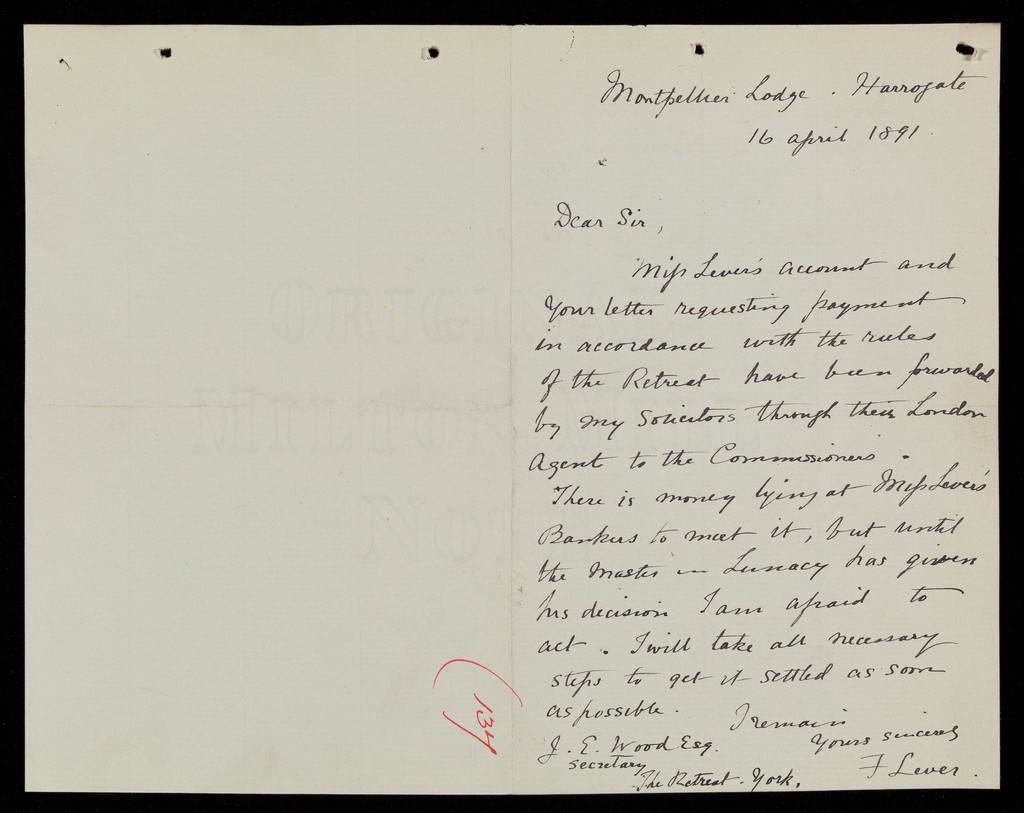 Montpellier Lodge . Harrogate
16 april 1891.
Dear Sir,
Miss Lever's account and
Your letter requesting payment
in accordance with the rules
of the Retreat have been forwarded
by my Solicitors through their London
Agent to the Commissioners .
There is money lying at Miss Lever's
Bankers to meet it, but until
the Master in Lunacy has given
his decision I am afraid to
act . I will take all necessary
steps to get it settled as soon
as possible.
I remain
Yours sincerely
F Lever .
J. E. Wood Esq.
Secretary
The Retreat . York.
ORIGINAL
MILTON MILL
NOTE